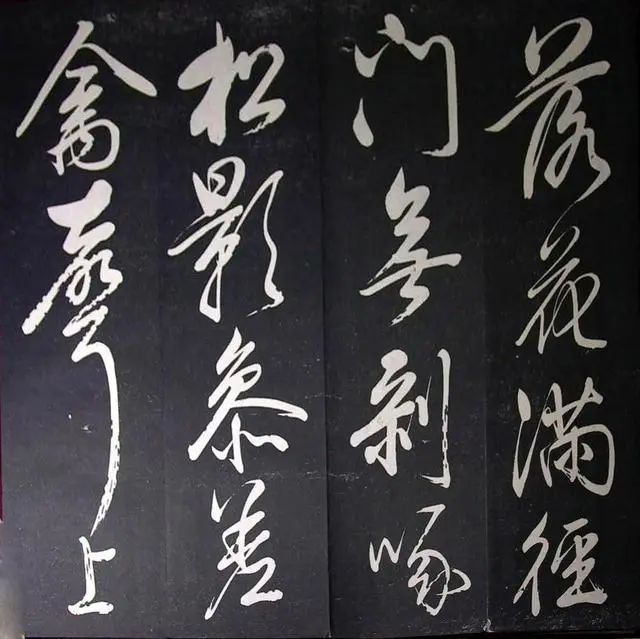 落花滿徑
門無剝啄
松影參差
禽聲上